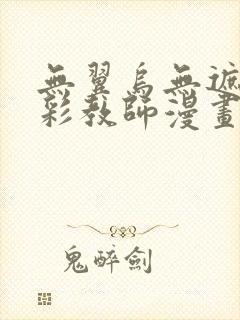 無翼烏無遮
彩教師漫畫
鬼醉劍